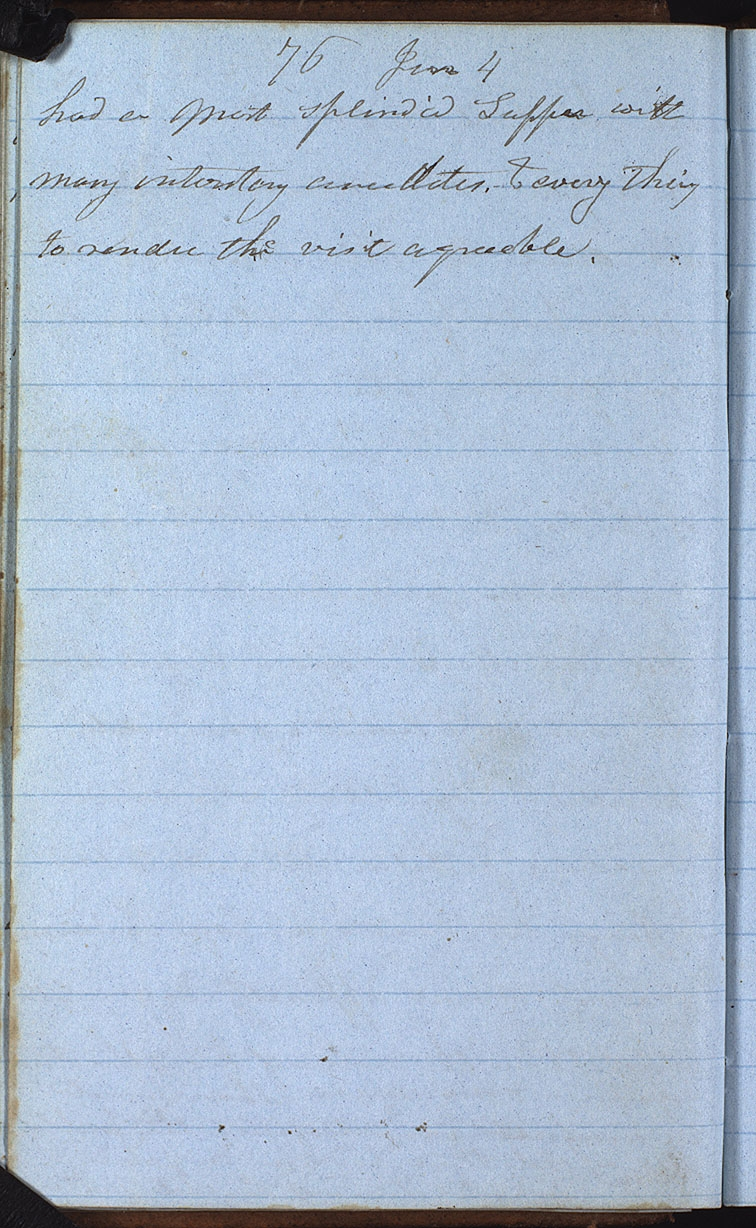 76 Jun 4
had a most splendid Supper with
many anecdotes. & every thing
to render the visit agreeable.